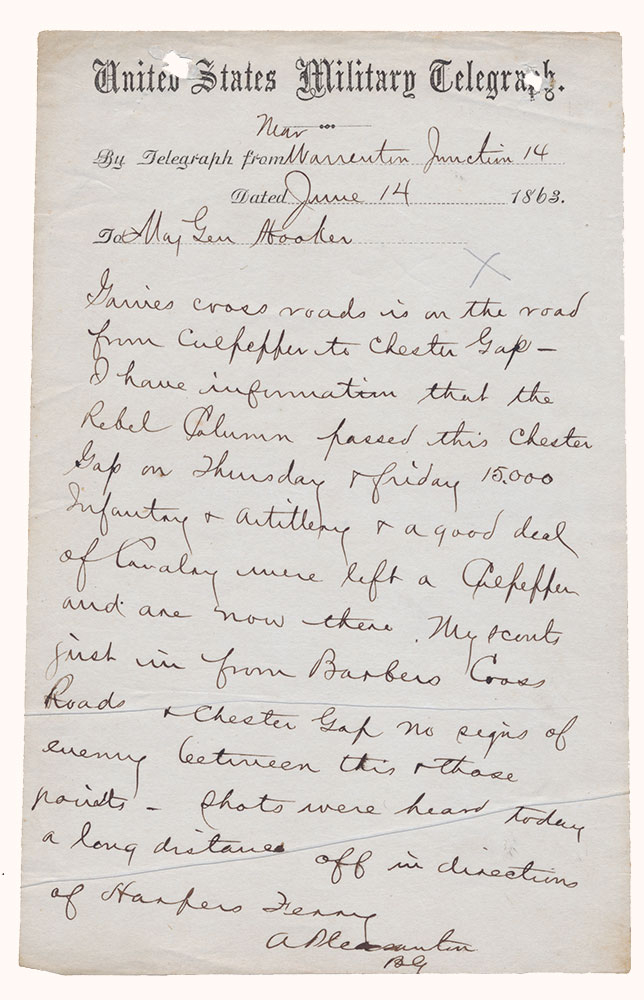 United States Military Telegraph.
Near
By Telegraph from Warrenton Junction 14
Dated June 14 1863.
To Maj Gen Hooker
Gaines cross roads is on the road
from Culpepper to Chester Gap —
I have information that the
Rebel Column passed this Chester
Gap on Thursday & friday 15.000
Infantry & Artillery & a good deal
of Cavalry were left a Culpepper
and are now there. My scouts
just in from Barbers Cross
Roads & Chester Gap no signs of
enemy between this & those
points — Shots were heard today
a long distance off in directions
of Harpers Ferry
A Pleasanton
BG